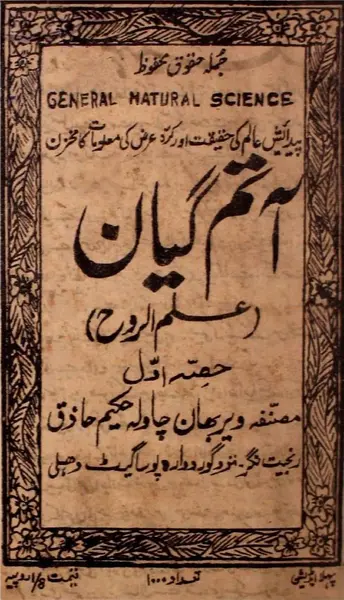 جملہ حقوق محفوظ
GENERAL NATURAL SCIENCE
پیدائیش عالم کی حقیقت اور کرہ عرض کی معلومات کا مخزن
آتم گیان
(علم الروح)
حصہ اوّل
مصنفہ ویر بھان چاولہ حکیم حاذق
رنجیت نگر۔ نزد گوردوارہ پوسا گیٹ دھلی
پہلا ایڈیشن تعداد ۱۰۰۰ قیمت 1/8 روپیہ